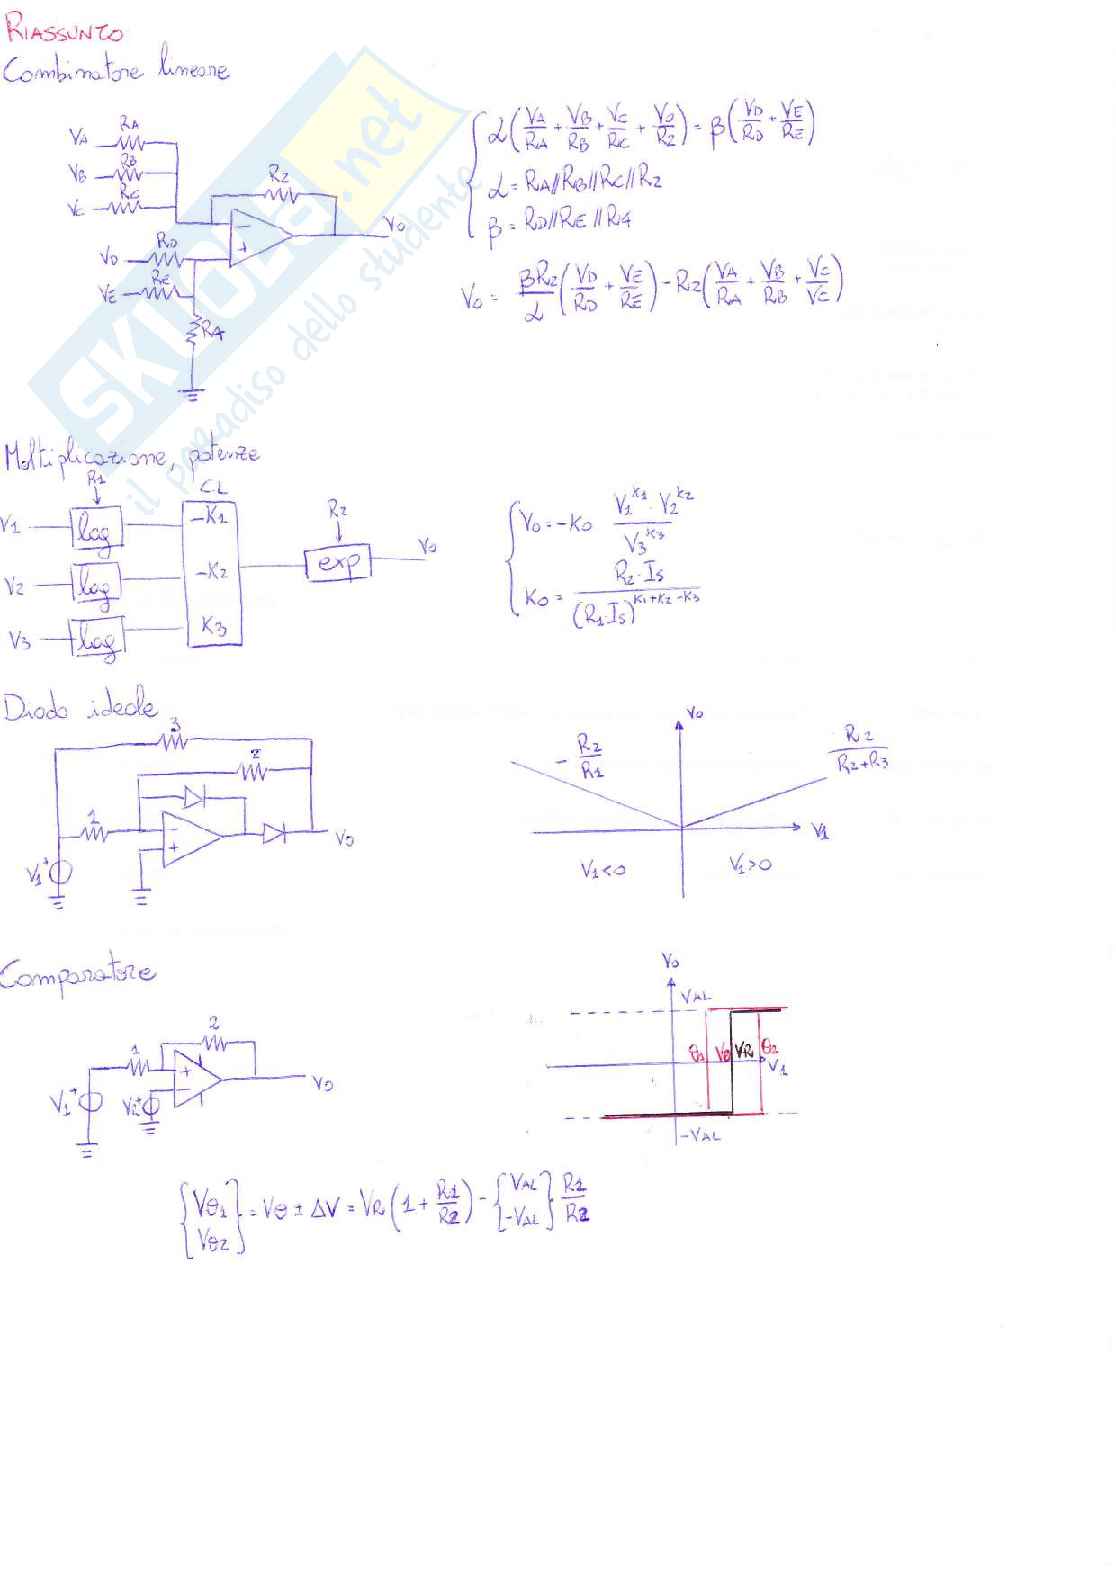 RIASSUNTO
Combinatore lineare
VA RA
VB RB
VC RC
R2
VO
VD RD
VE RE
RA
{ α(VA/RA + VB/RB + VC/RC + VO/R2) = β(VD/RD + VE/RE)
α = RA//RB//RC//R2
β = RD//RE//R4
VO = βR2/α (VD/RD + VE/RE) - R2(VA/RA + VB/RB + VC/VC)
SKUOLA.net
il paradiso dello studente
Moltiplicazione, potenze
R1 CL
V1 log -K1
V2 log -K2
V3 log K3
R2
exp VO
{ VO = -KO V1^K1 · V2^K2 / V3^K3
KO = R2·IS / (R1·IS)^K1+K2-K3
Diodo ideale
3
2
1
- +
V1 +
VO
VO
- R2/R1
R2/R2+R3
V1
V1<0 V1>0
Comparatore
2
1
+ -
V1 +
VO
VO
VAL
θ1 Vθ VR θ2
V1
-VAL
{Vθ1 Vθ2} = Vθ ± ΔV = VR(1 + R1/R2) - {VAL -VAL} R1/R2